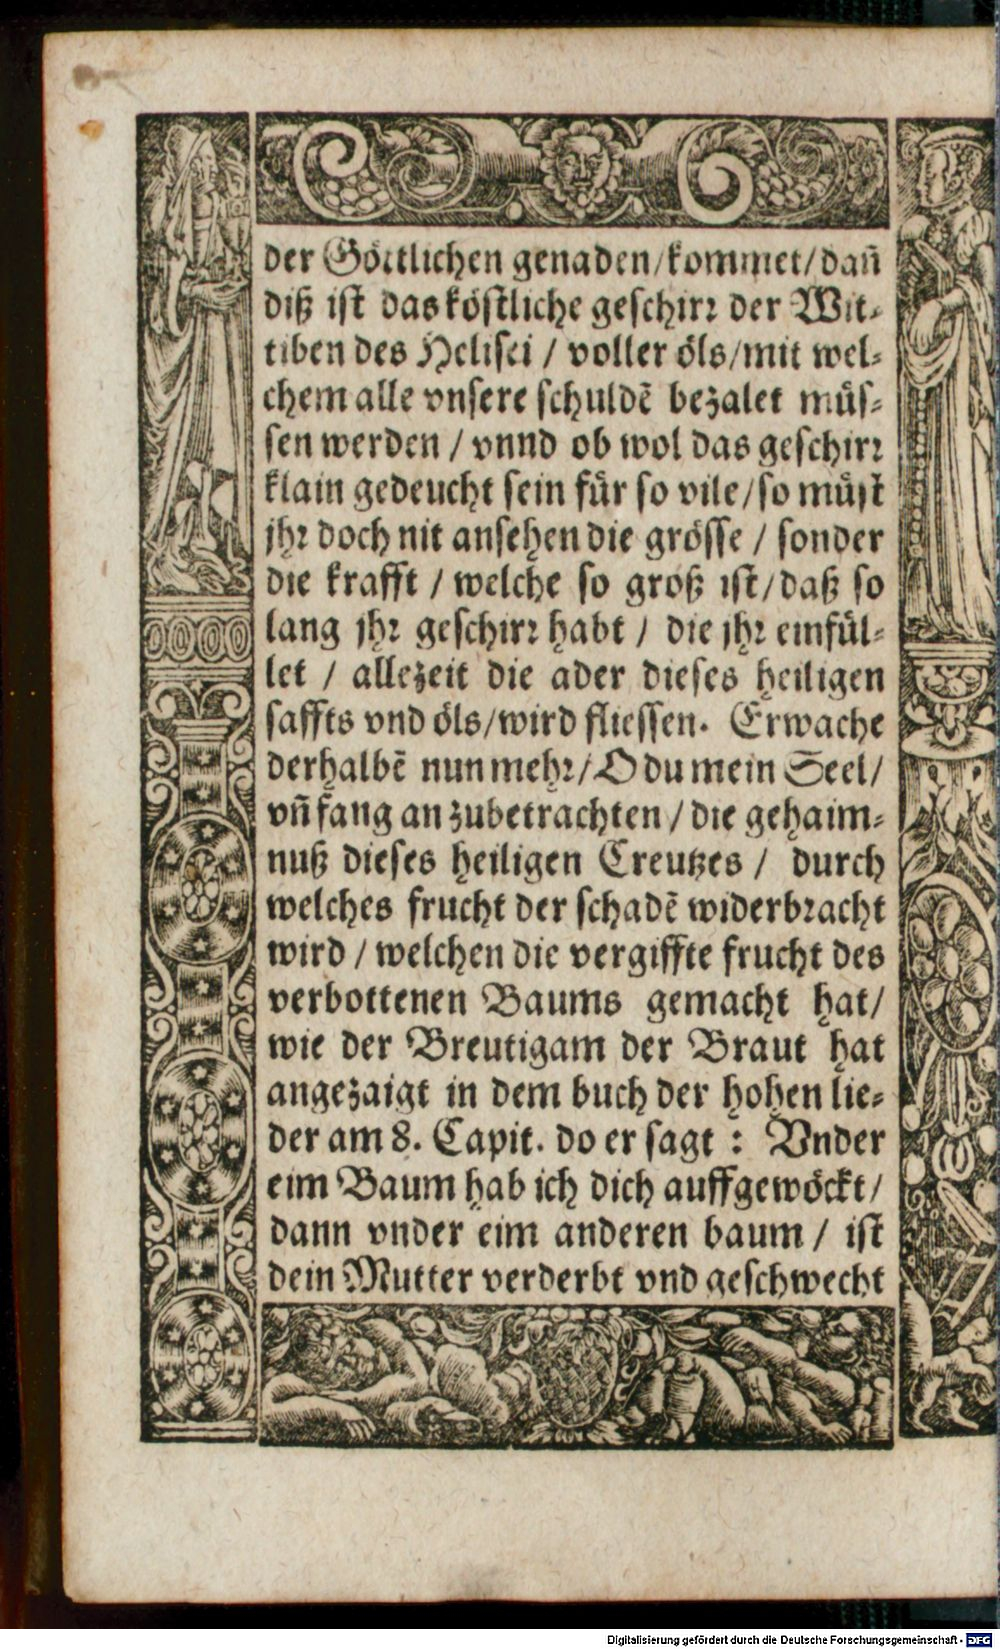 der Göttlichen genaden/kommet/dañ
diß ist das köstliche geschirꝛ der Wit⸗
tiben des Helisei / voller öls/mit wel⸗
chem alle vnsere schuldẽ bezalet müs⸗
sen werden / vnnd ob wol das geschirꝛ
klain gedeucht sein für so vile/so müst
jhꝛ doch nit ansehen die grösse / sonder
die krafft / welche so groß ist/daß so
lang jhꝛ geschirꝛ habt / die jhꝛ einfül⸗
let / allezeit die ader dieses heiligen
saffts vnd öls/wird fliessen. Erwache
derhalbẽ nun mehꝛ/O du mein Seel/
vñ fang an zubetrachten / die gehaim⸗
nuß dieses heiligen Creutzes / durch
welches frucht der schadẽ widerbꝛacht
wird / welchen die vergiffte frucht des
verbottenen Baums gemacht hat/
wie der Breutigam der Braut hat
angezaigt in dem buch der hohen lie⸗
der am 8. Capit. do er sagt : Vnder
eim Baum hab ich dich auffgewöckt/
dann vnder eim anderen baum / ist
dein Mutter verderbt vnd geschwecht
Digitalisierung gefördert durch die Deutsche Forschungsgemeinschaft - DFG